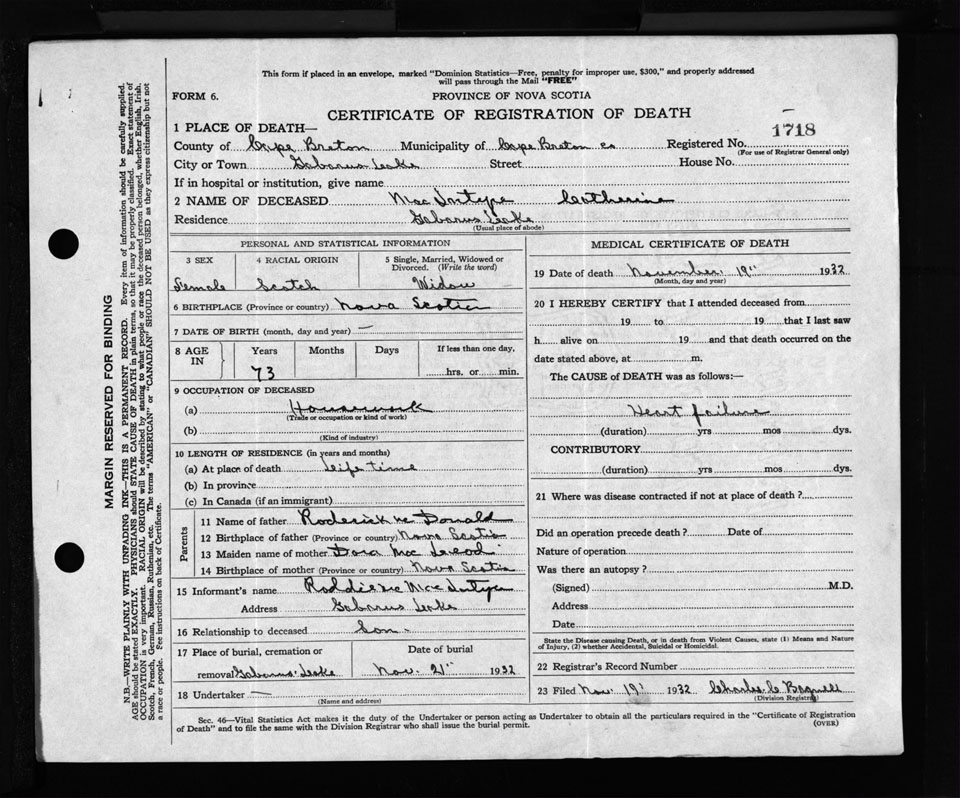 This form if placed in an envelope, marked "Dominion Statistics—Free, penalty for improper use, $300," and properly addressed
will pass through the Mail "FREE"
FORM 6.
PROVINCE OF NOVA SCOTIA
CERTIFICATE OF REGISTRATION OF DEATH
1718
1 PLACE OF DEATH—
County of Cape Breton Municipality of Cape Breton co Registered No.
(For use of Registrar General only)
City or Town Gabarus Leake Street House No.
If in hospital or institution, give name
2 NAME OF DECEASED MacIntype Catherine
Residence Gabarus Leake
(Usual place of abode)
PERSONAL AND STATISTICAL INFORMATION
3 SEX 4 RACIAL ORIGIN 5 Single, Married, Widowed or
Divorced. (Write the word)
Female Scotch Widow
6 BIRTHPLACE (Province or country) Nova Scotia
7 DATE OF BIRTH (month, day and year) —
8 AGE IN Years Months Days If less than one day,
73 hrs. or min.
9 OCCUPATION OF DECEASED
(a) Housework
(Trade or occupation or kind of work)
(b)
(Kind of industry)
10 LENGTH OF RESIDENCE (in years and months)
(a) At place of death Life time
(b) In province
(c) In Canada (if an immigrant)
Parents
11 Name of father Roderick Mc Donald
12 Birthplace of father (Province or country) Nova Scotia
13 Maiden name of mother Dora Mac Leod
14 Birthplace of mother (Province or country) Nova Scotia
15 Informant's name Roddie Mac Intype
Address Gabarus Leake
16 Relationship to deceased Son.
17 Place of burial, cremation or Date of burial
removal Gabarus Leake Nov. 21" 1932
18 Undertaker —
(Name and address)
MEDICAL CERTIFICATE OF DEATH
19 Date of death November 19" 1932
(Month, day and year)
20 I HEREBY CERTIFY that I attended deceased from
19 to 19 that I last saw
h alive on 19 and that death occurred on the
date stated above, at m.
The CAUSE of DEATH was as follows:—
Heart failure
(duration) yrs mos dys.
CONTRIBUTORY
(duration) yrs. mos. dys.
21 Where was disease contracted if not at place of death?
Did an operation precede death? Date of
Nature of operation
Was there an autopsy?
(Signed) M.D.
Address
Date
State the Disease causing Death, or in death from Violent Causes, state (1) Means and Nature
of Injury, (2) whether Accidental, Suicidal or Homicidal.
22 Registrar's Record Number
23 Filed Nov. 19" 1932 Charles C Bagnell
(Division Registrar)
Sec. 46—Vital Statistics Act makes it the duty of the Undertaker or person acting as Undertaker to obtain all the particulars required in the "Certificate of Registration
of Death" and to file the same with the Division Registrar who shall issue the burial permit.
(OVER)
MARGIN RESERVED FOR BINDING
N.B.—WRITE PLAINLY WITH UNFADING INK—THIS IS A PERMANENT RECORD. Every item of information should be carefully supplied.
AGE should be stated EXACTLY. PHYSICIANS should STATE CAUSE OF DEATH in plain terms, so that it may be properly classified. Exact statement of
OCCUPATION is very important. RACIAL ORIGIN will be described by stating to what people or race the deceased person belonged, whether English, Irish,
Scotch, French, German, Russian, Ruthenian, etc. The terms "AMERICAN" or "CANADIAN" SHOULD NOT BE USED as they express citizenship but not
a race or people. See instructions on back of Certificate.